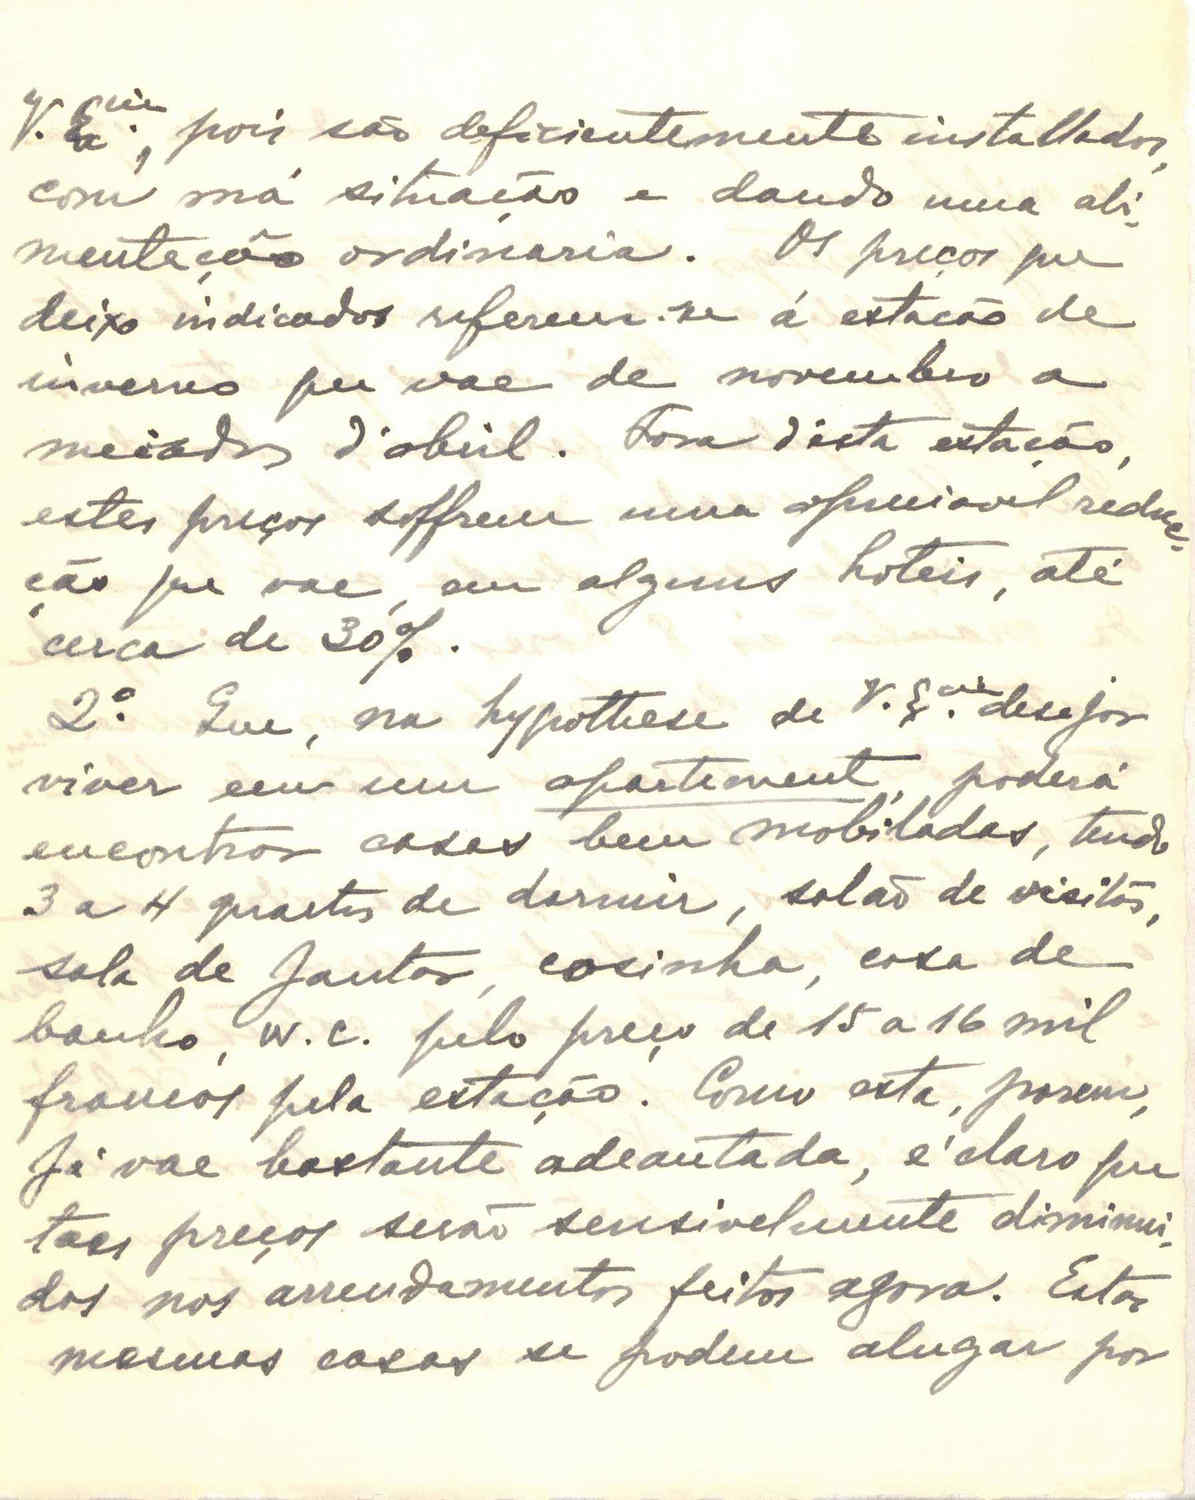 V. Ex.cia, pois são deficientemente installados,
com má situação e dando uma ali-
mentação ordinaria. Os preços que
deixo indicados referem-se á estação de
inverno que vae de novembro a
meiados d'abril. Fora d'esta estação,
estes preços soffrem uma apreciavel reduc-
ção que vae, em alguns hoteis, até
cerca de 30%.
2.º Que, na hypothese de V. Ex.cia desejar
viver em um apartement, poderá
encontrar casas bem mobiladas, tendo
3 a 4 quartos de dormir, salão de visitas,
sala de jantar, cosinha, casa de
banho, W.C. pelo preço de 15 a 16 mil
francos pela estação. Como esta, porem,
já vae bastante adeantada, é claro que
taes preços serão sensivelmente diminui-
dos nos arrendamentos feitos agora. Estas
mesmas casas se podem alugar por